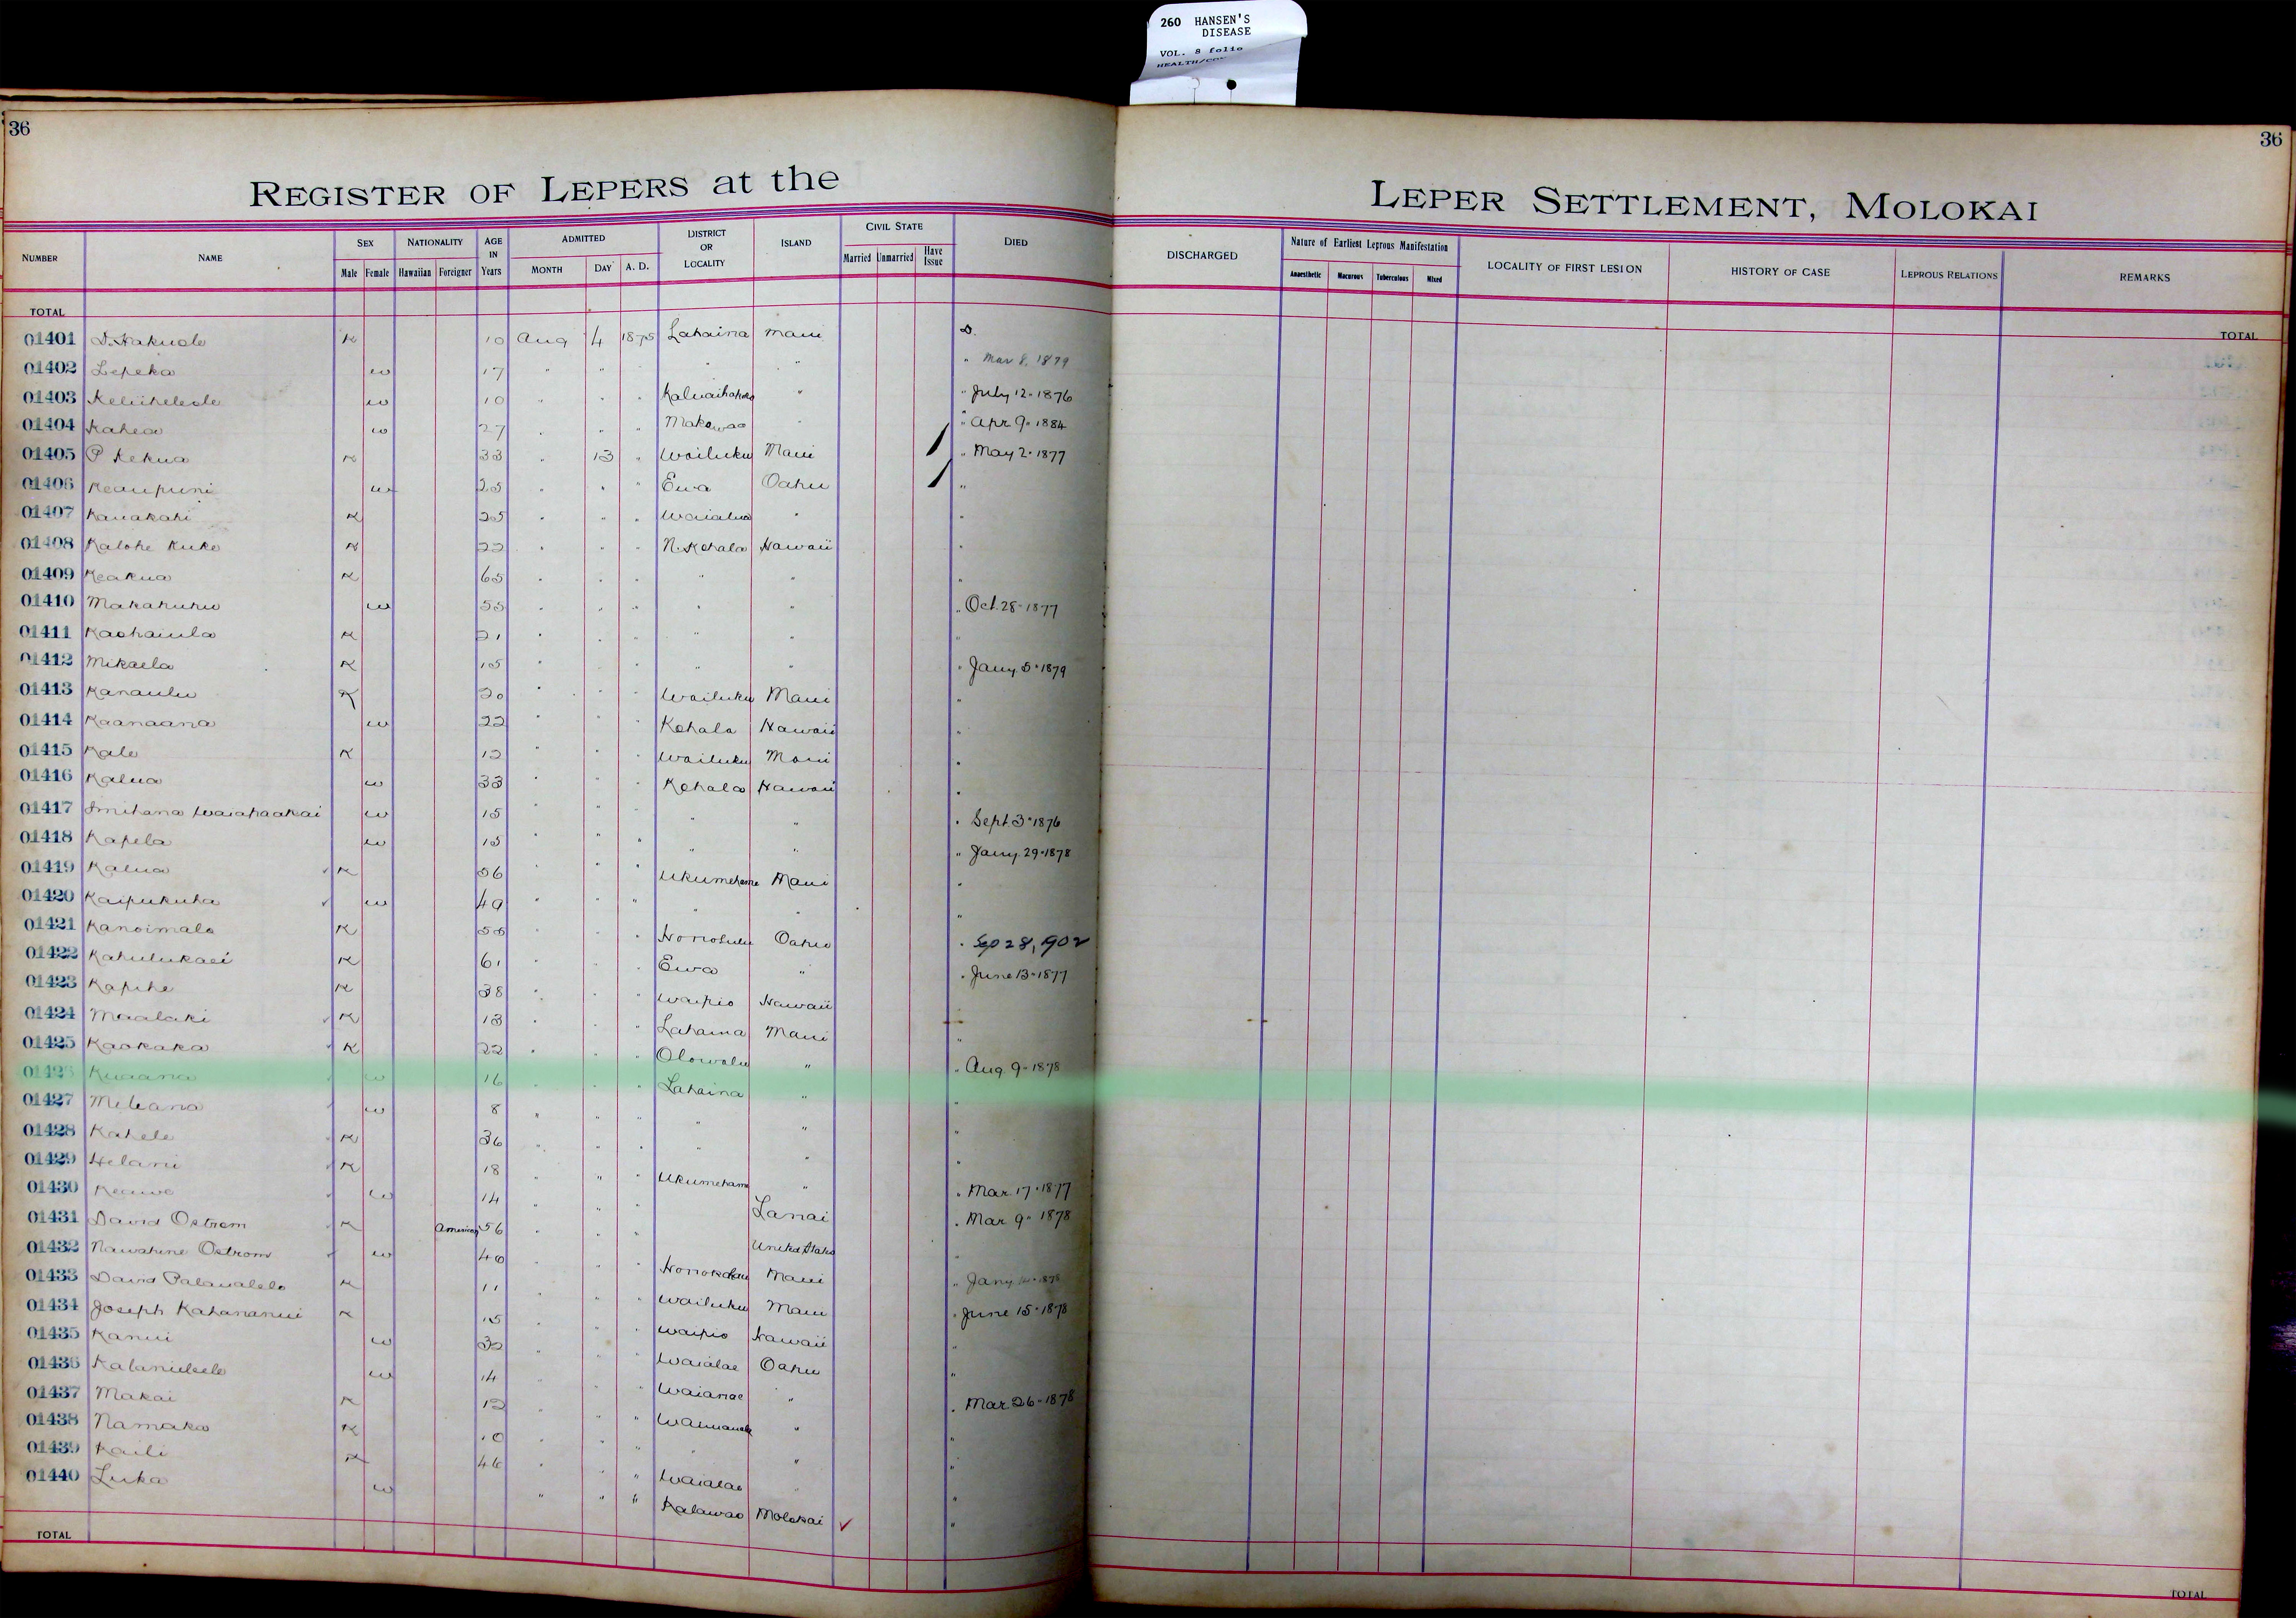 260 HANSEN'S
DISEASE
VOL. 8 folio
36
36
REGISTER OF LEPERS at the
LEPER SETTLEMENT, MOLOKAI
NUMBER NAME SEX Male Female NATIONALITY Hawaiian Foreigner AGE IN Years ADMITTED MONTH DAY A. D. DISTRICT OR LOCALITY ISLAND CIVIL STATE Married Unmarried Have Issue DIED
DISCHARGED Nature of Earliest Leprous Manifestation Anaesthetic Macurous Tuberculous Mixed LOCALITY OF FIRST LESION HISTORY OF CASE LEPROUS RELATIONS REMARKS
TOTAL
TOTAL
01401 D. Hakuole K 10 Aug 4 1875 Lahaina Maui D.
01402 Lepeka w 17 " " " " " " Mar 8, 1879
01403 Keliihelede w 10 " " " " " July 12 - 1876
01404 Kahea w 27 " " " Makawao " " Apr 9 - 1884
01405 P Kekua K 33 " 13 " Wailuku Maui " May 2 - 1877
01406 Keaupuni w 25 " " " Ewa Oahu "
01407 Kauakahi K 25 " " " Waialua " "
01408 Kalohe Kuke K 22 " " " N. Kohala Hawaii "
01409 Keakua K 65 " " " " " "
01410 Makahuhu w 55 " " " " " " Oct. 28 - 1877
01411 Kaohaiula K 21 " " " " " "
01412 Mikaela K 15 " " " " " " Jany 5 - 1879
01413 Kanaulu K 20 " " " Wailuku Maui "
01414 Kaanaana w 22 " " " Kohala Hawaii "
01415 Kale K 12 " " " Wailuku Maui "
01416 Kalua w 33 " " " Kohala Hawaii "
01417 Smihana Waiahaakai w 15 " " " " " " Sept. 3 - 1876
01418 Kapela w 15 " " " " " " Jany. 29 - 1878
01419 Kalua K 56 " " " Ukumehame Maui "
01420 Kaipukuha w 49 " " " " " "
01421 Kanoimalo K 55 " " " Honolulu Oahu " Sep 28, 1902
01422 Kahulukaei K 61 " " " Ewa " " June 13 - 1877
01423 Kapihe K 38 " " " Waipio Hawaii
01424 Maalaki K 13 " " " Lahaina Maui "
01425 Kaokaka K 22 " " " Olowalu " " Aug 9 - 1878
Kuaana w 16 " " " Lahaina " "
01427 Meleana w 8 " " " " " "
01428 Kahele K 36 " " " " " "
01429 Helani K 18 " " " Ukumehame " " Mar. 17 - 1877
01430 Keawe w 14 " " " Lanai " Mar. 9 - 1878
01431 David Ostrom K American 56 " " " United States "
01432 Nawahine Ostrom w 40 " " " Honokohau Maui " Jany 1878
01433 David Palaualelo K 11 " " " Wailuku Maui " June 15 - 1878
01434 Joseph Kahananui K 15 " " " Waipio Hawaii "
01435 Kanui w 32 " " " Waialae Oahu "
01436 w 14 " " " Waianae " " Mar. 26 - 1878
01437 Makai K 12 " " " " "
01438 Namaka K 10 " " " " " "
01439 Kaili K 46 " " " Waialae " "
01440 Luka w " " " Kalawao Molokai "
TOTAL
TOTAL